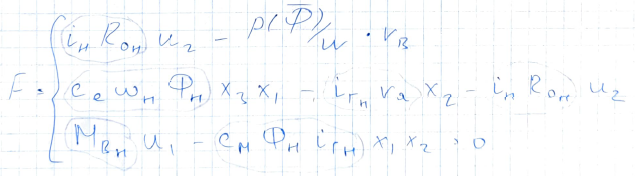 i_н R_он u_2 - P(Φ̅)/W · r_в
F = { c_e ω_н Φ_н x_3 x_1 - i_гн r_я x_2 - i_н R_он u_2
M_вн u_1 - c_м Φ_н i_гн x_1 x_2 · 0